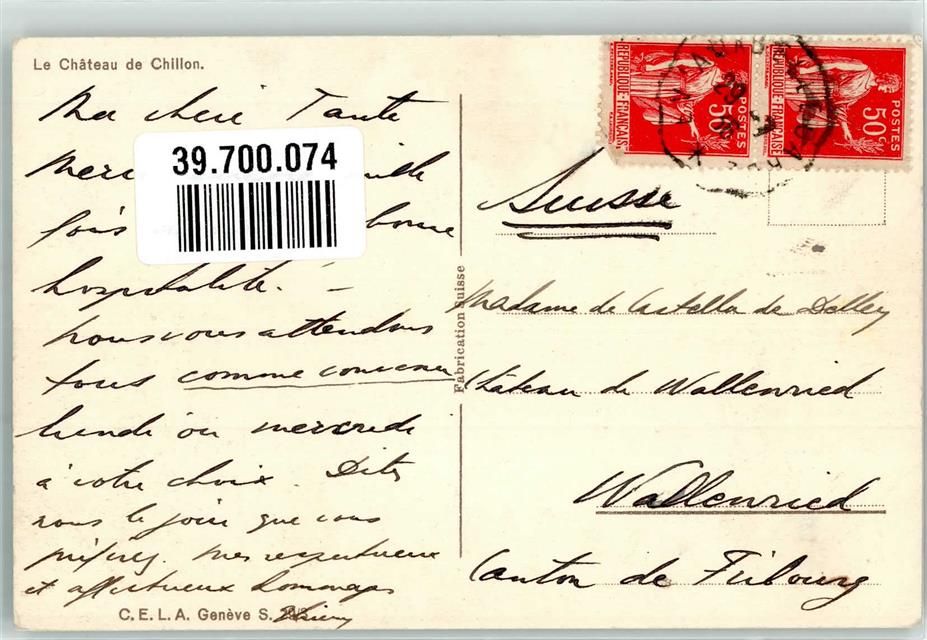 Le Château de Chillon.
Ma chère Tante
39.700.074
Merci mille
fois bonne
hospitalité. –
nous vous attendons
tous comme convenu
lundi ou mercredi
à votre choix. Dites
nous le jour que vous
préférez. Mes respectueux
et affectueux hommages
Thierry
C.E.L.A. Genève S.
Fabrication Suisse
REPUBLIQUE FRANÇAISE
POSTES
50c
REPUBLIQUE FRANÇAISE
POSTES
50c
Suisse
Madame de Castella de Delley
Château de Wallenried
Wallenried
Canton de Fribourg